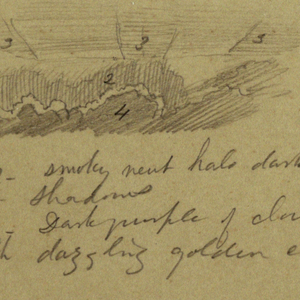 3 3 3
2
4
smoky neut halo dark
shadows
Dark purple of clou
dazzling golden e